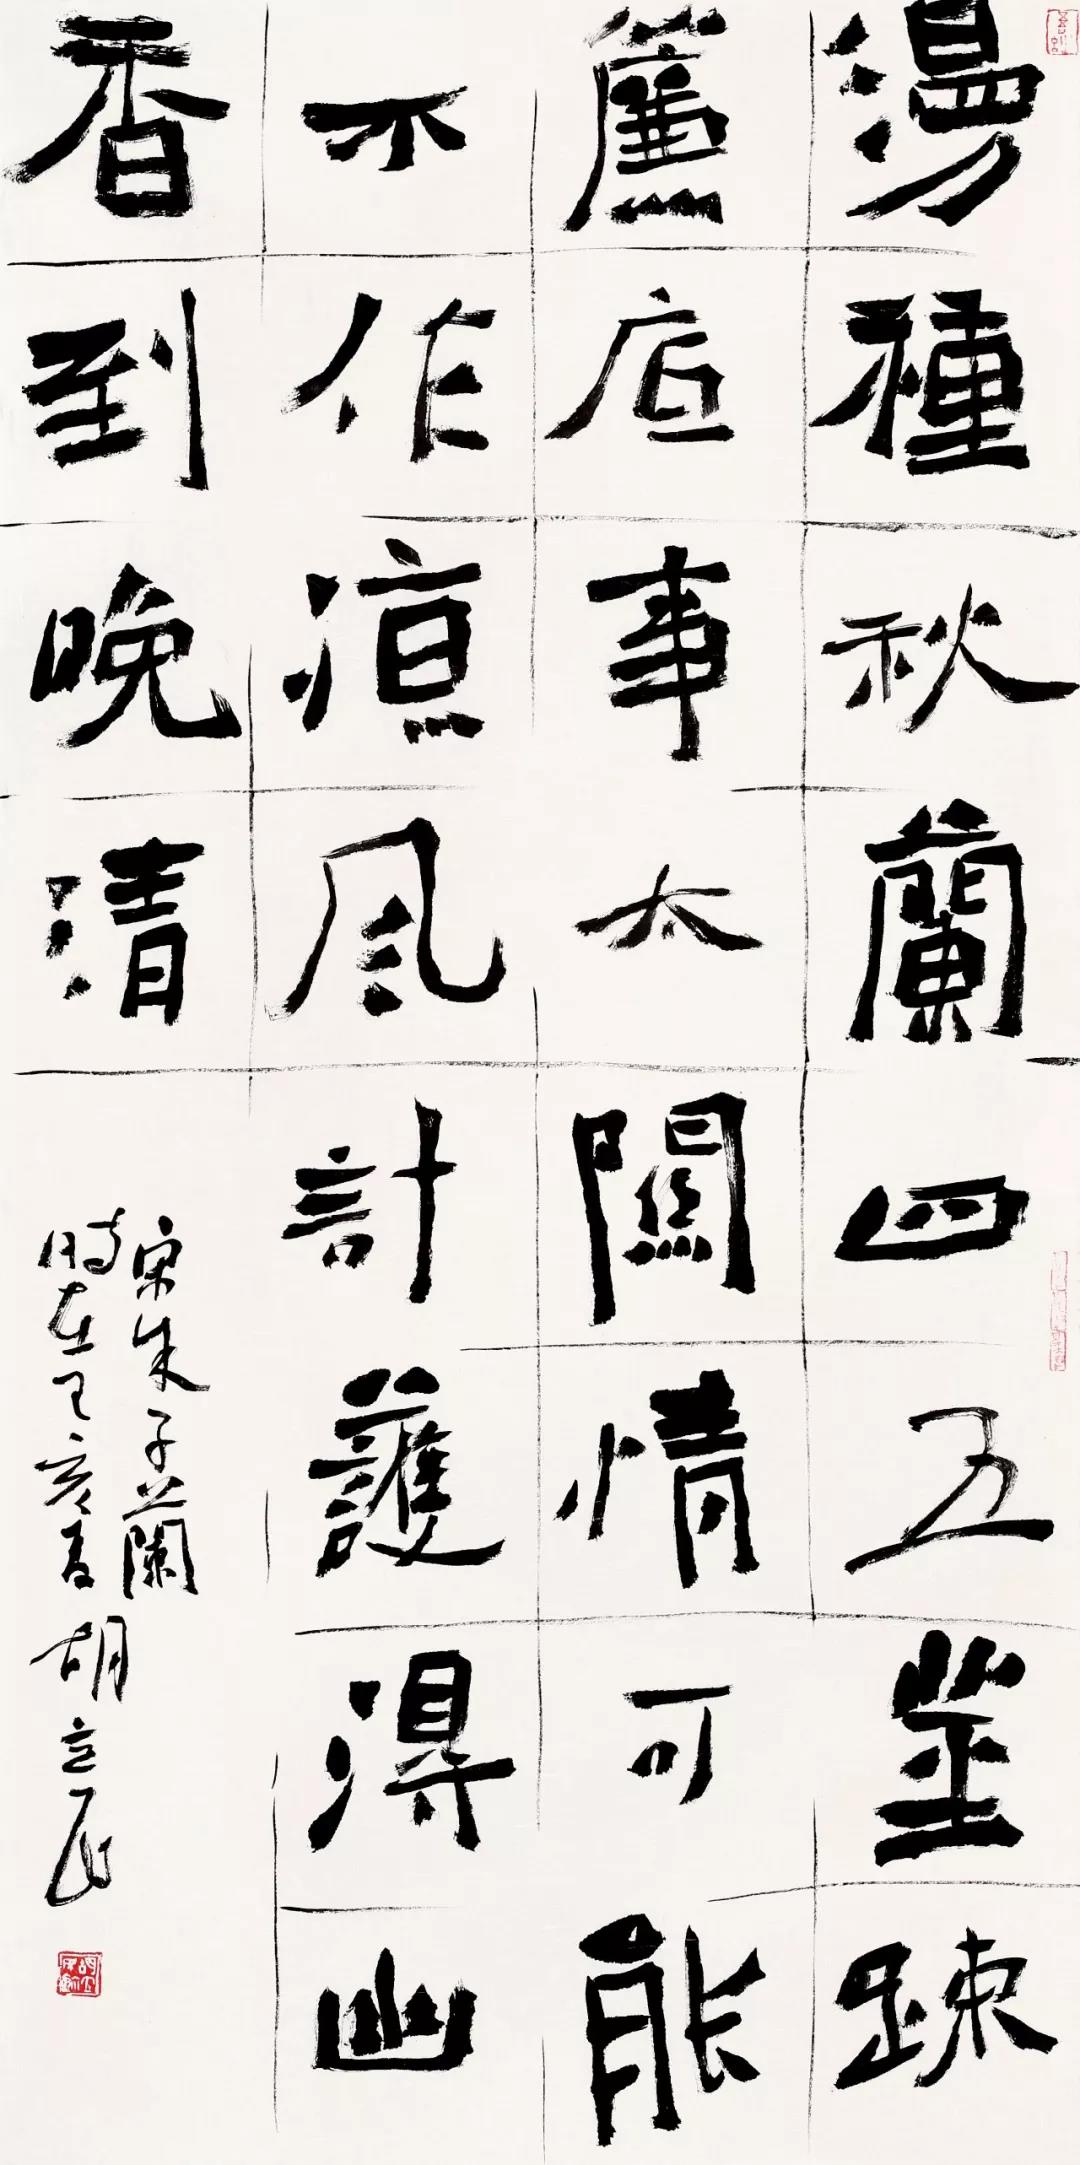 漫種秋蘭四五莖疎
簾底事太關情可能
不作涼風計護得幽
香到晚清
宋朱子蘭
時在己亥夏胡立民